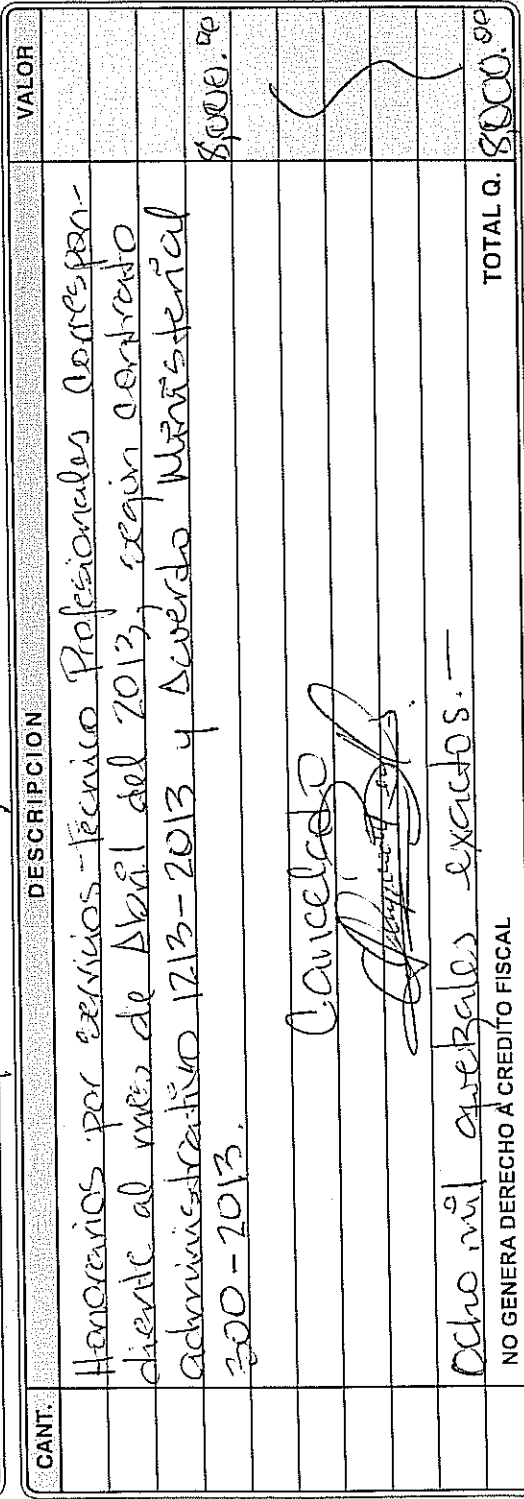 CANT. DESCRIPCION VALOR
Honorarios por servicios Técnico Profesionales Correspon-
diente al mes de Abril del 2013, según contrato
administrativo 1213-2013 y Acuerdo Ministerial
300-2013. 8,000.00
Cancelado
Ocho mil quetzales exactos.-
TOTAL Q. 8,000.00
NO GENERA DERECHO A CREDITO FISCAL